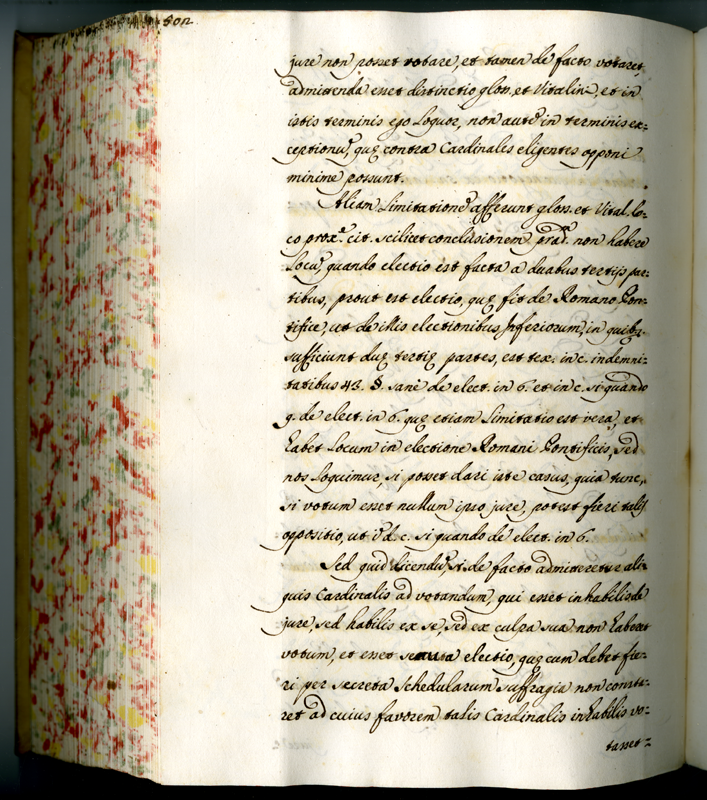 502
jure non posset votare, et tamen de facto votaret,
admittenda esset distinctio glos. et Vitalin. et in
istis terminis ego loquor, non aute in terminis ex=
ceptionu, quę contra Cardinales eligentes opponi
minime possunt.
Aliam limitatione afferunt glos. et Vital. lo=
co prox.e cit. scilicet conclusionem præd. non habere
Locu, quando electio est facta a duabus tertijs par=
tibus, prout est electio, quę fit de Romano Pon=
tifice, ut de illis electionibus Inferiorum, in quibus
sufficiunt duę tertię partes, est tex. in c. indemni=
tatibus 43. §. sanè de elect. in 6. et in c. si quando
9. de elect. in 6. quę etiam limitatio est vera, et
habet Locum in electione Romani Pontificis, sed
nos loquimur, si posset dari iste casus, quia tunc,
si votum esset nullum ipso jure, potest fieri talis
oppositio, ut i d. c. si quando de elect. in 6.
Sed quid dicendu, si de facto admitteretur ali=
quis Cardinalis ad votandum, qui esset inhabilis de
jure, sed habilis ex se, sed ex culpa sua non haberet
votum, et esset secuta electio, quę cum debet fie=
ri per secreta schedularum suffragia non consta=
ret ad cuius favorem talis Cardinalis inhabilis vo=
tasset=